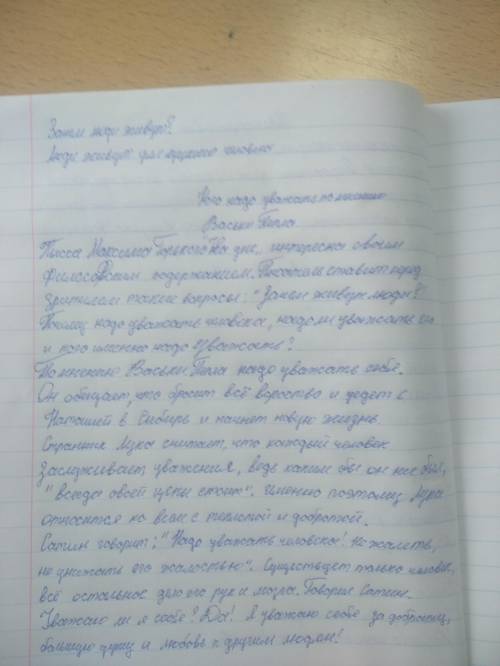 Зачем люди живут?
Люди живут для лучшего человека
Кого надо уважать по мнению
Васьки Пепла
Пьеса Максима Горького "На дне" интересна своим
философским содержанием. Писатель ставит перед
зрителем такие вопросы: "Зачем живут люди?
Почему надо уважать человека, надо ли уважать его
и кого именно надо уважать?
По мнению Васьки Пепла надо уважать себя.
Он обещает, что бросит всё воровство и уедет с
Наташей в Сибирь и начнет новую жизнь.
Странник Лука считает, что каждый человек
заслуживает уважения, ведь каким бы он не был,
"всегда своей цены стоит". Именно поэтому Лука
относится ко всем с теплотой и добротой.
Сатин говорит: "Надо уважать человека! Не жалеть,
не унижать его жалостью". Существует только человек,
всё остальное дело его рук и мозга. Говорил Сатин.
Уважаю ли я себя? Да! Я уважаю себя за доброту,
большую душу и любовь к другим людям!